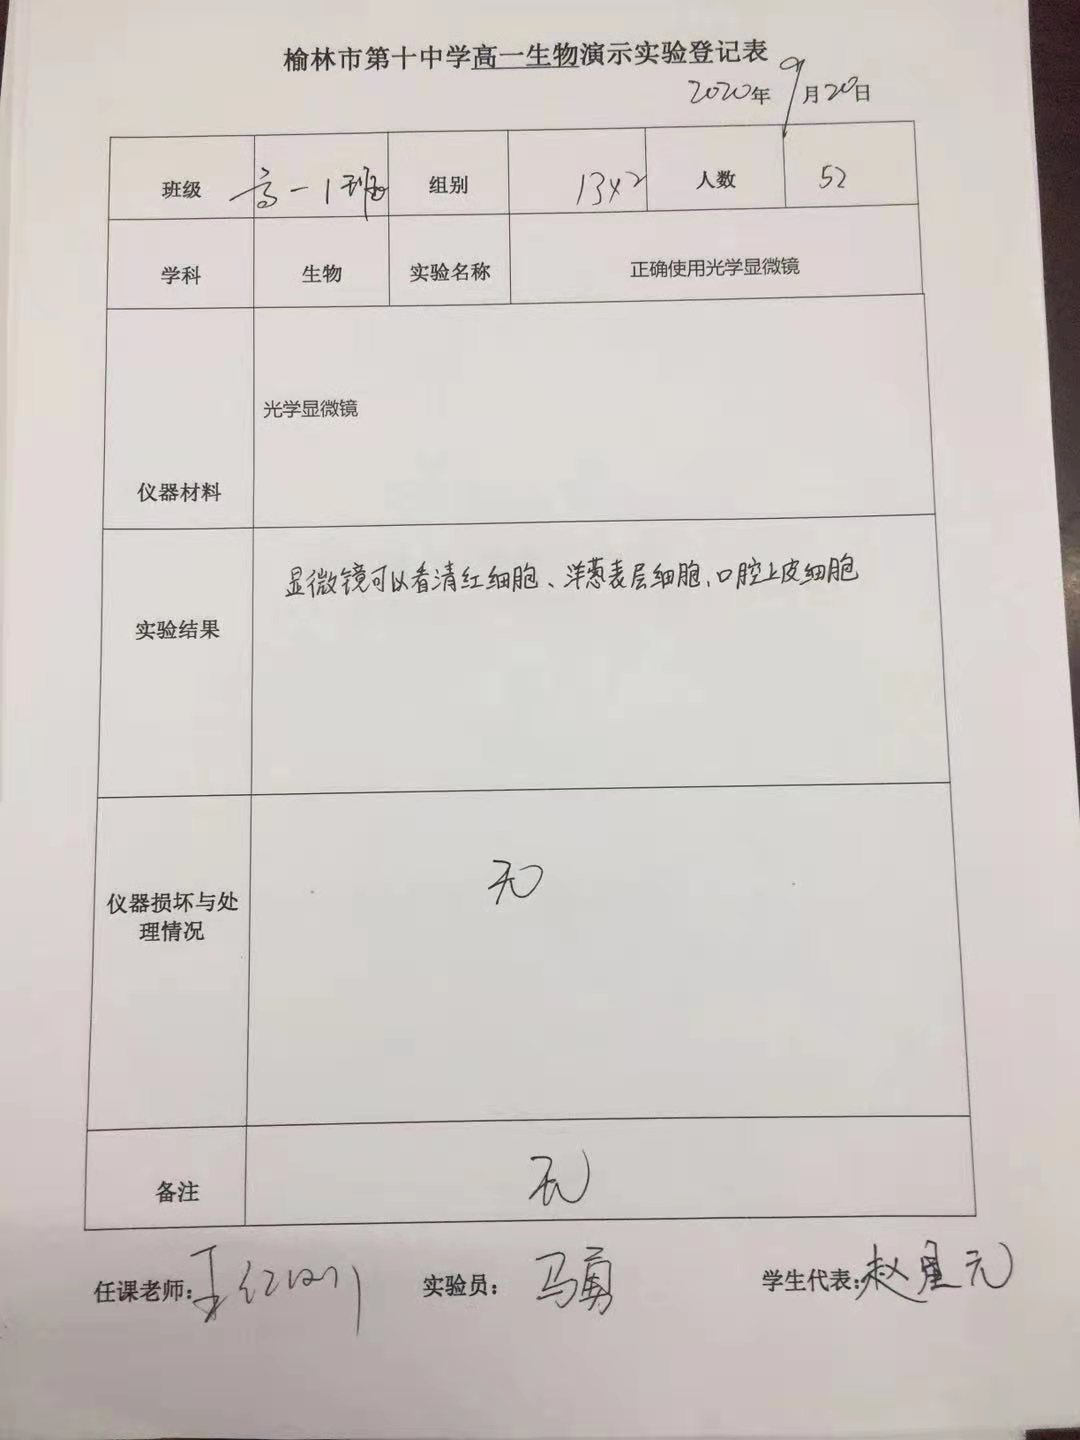 榆林市第十中学高一生物演示实验登记表
2020年9月20日
班级 高一1班 组别 13x2 人数 52
学科 生物 实验名称 正确使用光学显微镜
光学显微镜
仪器材料
显微镜可以看清红细胞、洋葱表层细胞、口腔上皮细胞
实验结果
无
仪器损坏与处
理情况
备注 无
任课老师: 实验员: 马勇 学生代表: 赵星元